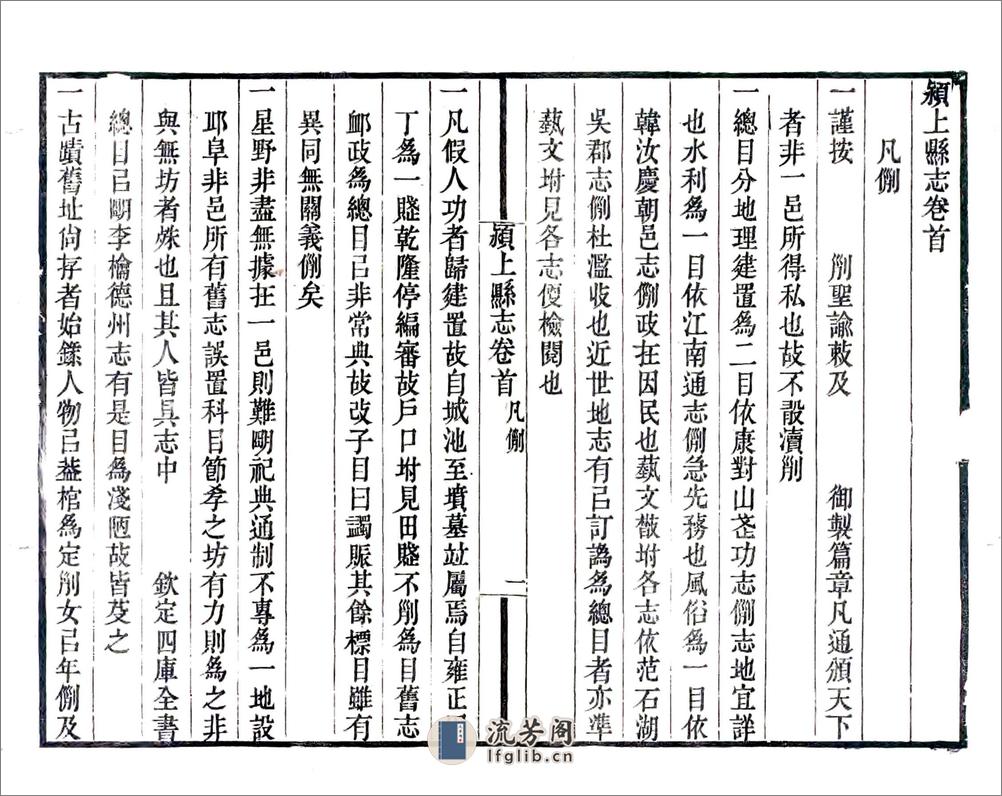 潁上縣志卷首
凡例
一謹按 列聖諭敕及 御製篇章凡通頒天下
者非一邑所得私也故不敢瀆列
一總目分地理建置爲二目依康對山武功志例志地宜詳
也水利爲一目依江南通志例急先務也風俗爲一目依
韓汝慶朝邑志例政在因民也藝文散坿各志依范石湖
吳郡志例杜濫收也近世地志有㠯訂譌爲總目者亦準
藝文坿見各志便檢閱也
潁上縣志卷首 凡例 一
一凡假人功者歸建置故自城池至墳墓竝屬焉自雍正
丁爲一賤乾隆停編審故戶口坿見田賤不列爲目舊志
卹政爲總目㠯非常典故改子目曰蠲賑其餘標目雖有
異同無關義例矣
一星野非盡無據在一邑則難明祀典通制不專爲一地設
耶阜非邑所有舊志誤置科目節孝之坊有力則爲之非
與無坊者殊也且其人皆具志中 欽定四庫全書
總目㠯明李檎德州志有是目爲淺陋故皆芟之
一古蹟舊址尙存者始錄人物㠯葢棺爲定列女㠯年例及
流芳阁
lfglib.cn